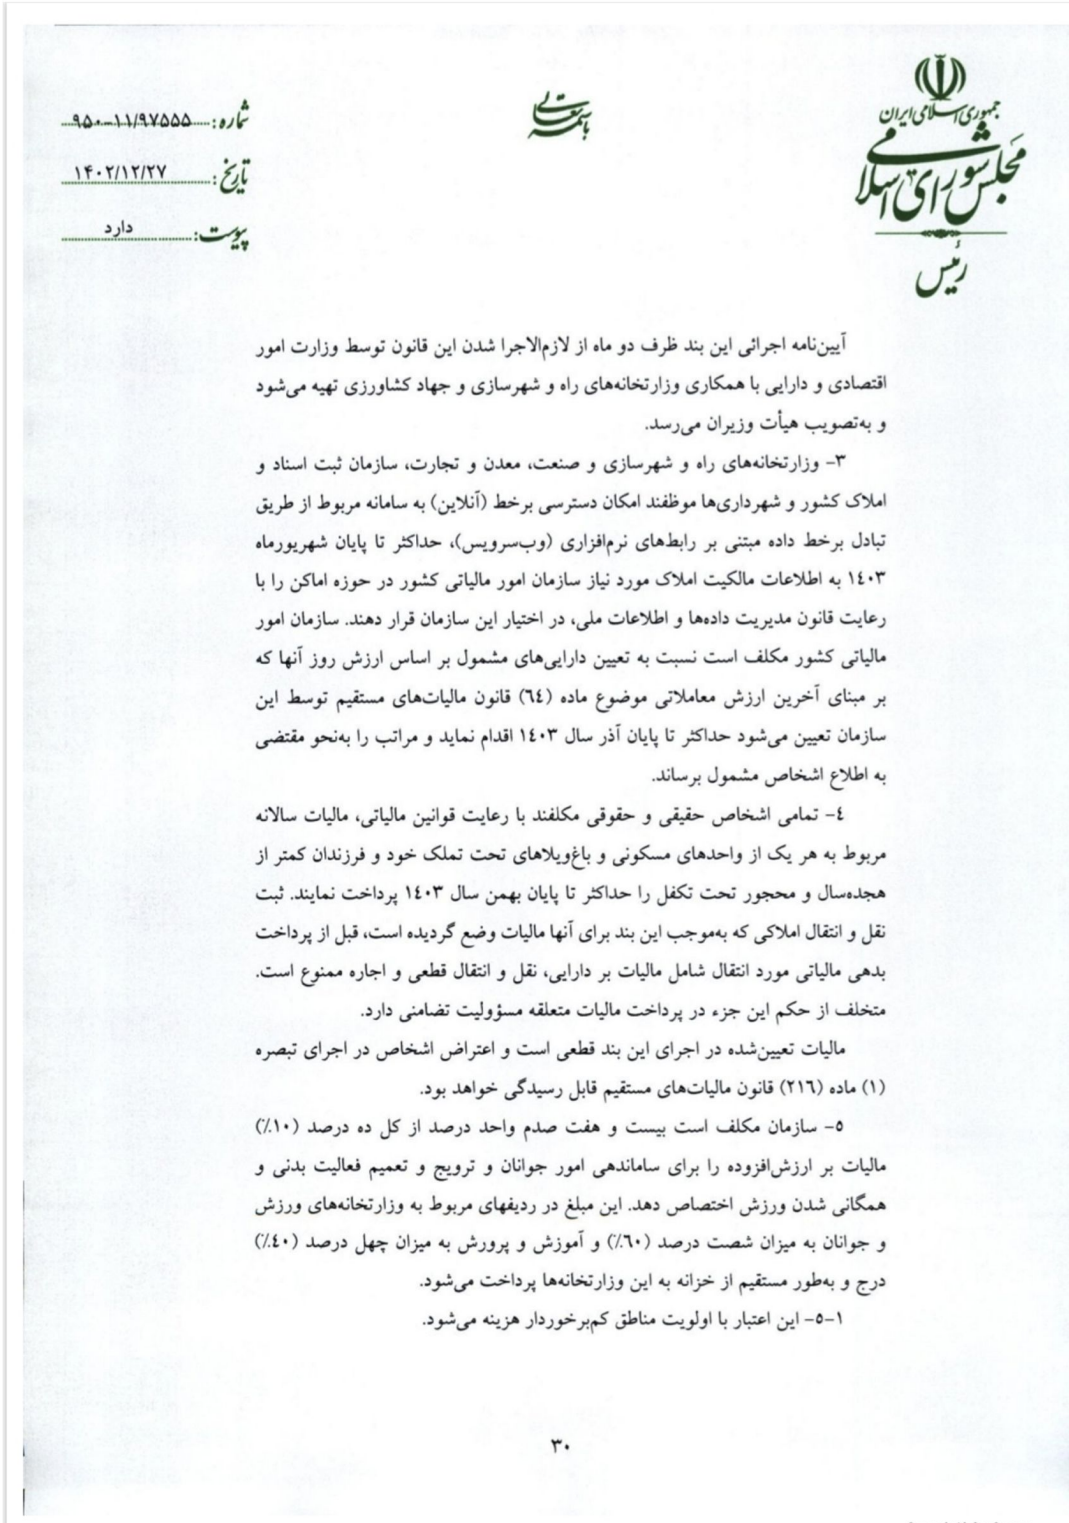 جمهوری اسلامی ایران
مجلس شورای اسلامی
رئیس
باسمه تعالی
شماره: ۹۵۰-۱۱/۹۷۵۵۵
تاریخ: ۱۴۰۲/۱۲/۲۷
پیوست: دارد
آیین‌نامه اجرائی این بند ظرف دو ماه از لازم‌الاجرا شدن این قانون توسط وزارت امور
اقتصادی و دارایی با همکاری وزارتخانه‌های راه و شهرسازی و جهاد کشاورزی تهیه می‌شود
و به‌تصویب هیأت وزیران می‌رسد.
۳- وزارتخانه‌های راه و شهرسازی و صنعت، معدن و تجارت، سازمان ثبت اسناد و
املاک کشور و شهرداری‌ها موظفند امکان دسترسی برخط (آنلاین) به سامانه مربوط از طریق
تبادل برخط داده مبتنی بر رابط‌های نرم‌افزاری (وب‌سرویس)، حداکثر تا پایان شهریورماه
۱٤۰۳ به اطلاعات مالکیت املاک مورد نیاز سازمان امور مالیاتی کشور در حوزه اماکن را با
رعایت قانون مدیریت داده‌ها و اطلاعات ملی، در اختیار این سازمان قرار دهند. سازمان امور
مالیاتی کشور مکلف است نسبت به تعیین دارایی‌های مشمول بر اساس ارزش روز آنها که
بر مبنای آخرین ارزش معاملاتی موضوع ماده (٦٤) قانون مالیات‌های مستقیم توسط این
سازمان تعیین می‌شود حداکثر تا پایان آذر سال ۱٤۰۳ اقدام نماید و مراتب را به‌نحو مقتضی
به اطلاع اشخاص مشمول برساند.
٤- تمامی اشخاص حقیقی و حقوقی مکلفند با رعایت قوانین مالیاتی، مالیات سالانه
مربوط به هر یک از واحدهای مسکونی و باغ‌ویلاهای تحت تملک خود و فرزندان کمتر از
هجده‌سال و محجور تحت تکفل را حداکثر تا پایان بهمن سال ۱٤۰۳ پرداخت نمایند. ثبت
نقل و انتقال املاکی که به‌موجب این بند برای آنها مالیات وضع گردیده است، قبل از پرداخت
بدهی مالیاتی مورد انتقال شامل مالیات بر دارایی، نقل و انتقال قطعی و اجاره ممنوع است.
متخلف از حکم این جزء در پرداخت مالیات متعلقه مسؤولیت تضامنی دارد.
مالیات تعیین‌شده در اجرای این بند قطعی است و اعتراض اشخاص در اجرای تبصره
(۱) ماده (۲۱٦) قانون مالیات‌های مستقیم قابل رسیدگی خواهد بود.
۵- سازمان مکلف است بیست و هفت صدم واحد درصد از کل ده درصد (۱۰٪)
مالیات بر ارزش‌افزوده را برای ساماندهی امور جوانان و ترویج و تعمیم فعالیت بدنی و
همگانی شدن ورزش اختصاص دهد. این مبلغ در ردیفهای مربوط به وزارتخانه‌های ورزش
و جوانان به میزان شصت درصد (٦۰٪) و آموزش و پرورش به میزان چهل درصد (٤۰٪)
درج و به‌طور مستقیم از خزانه به این وزارتخانه‌ها پرداخت می‌شود.
۵-۱- این اعتبار با اولویت مناطق کم‌برخوردار هزینه می‌شود.
۳۰